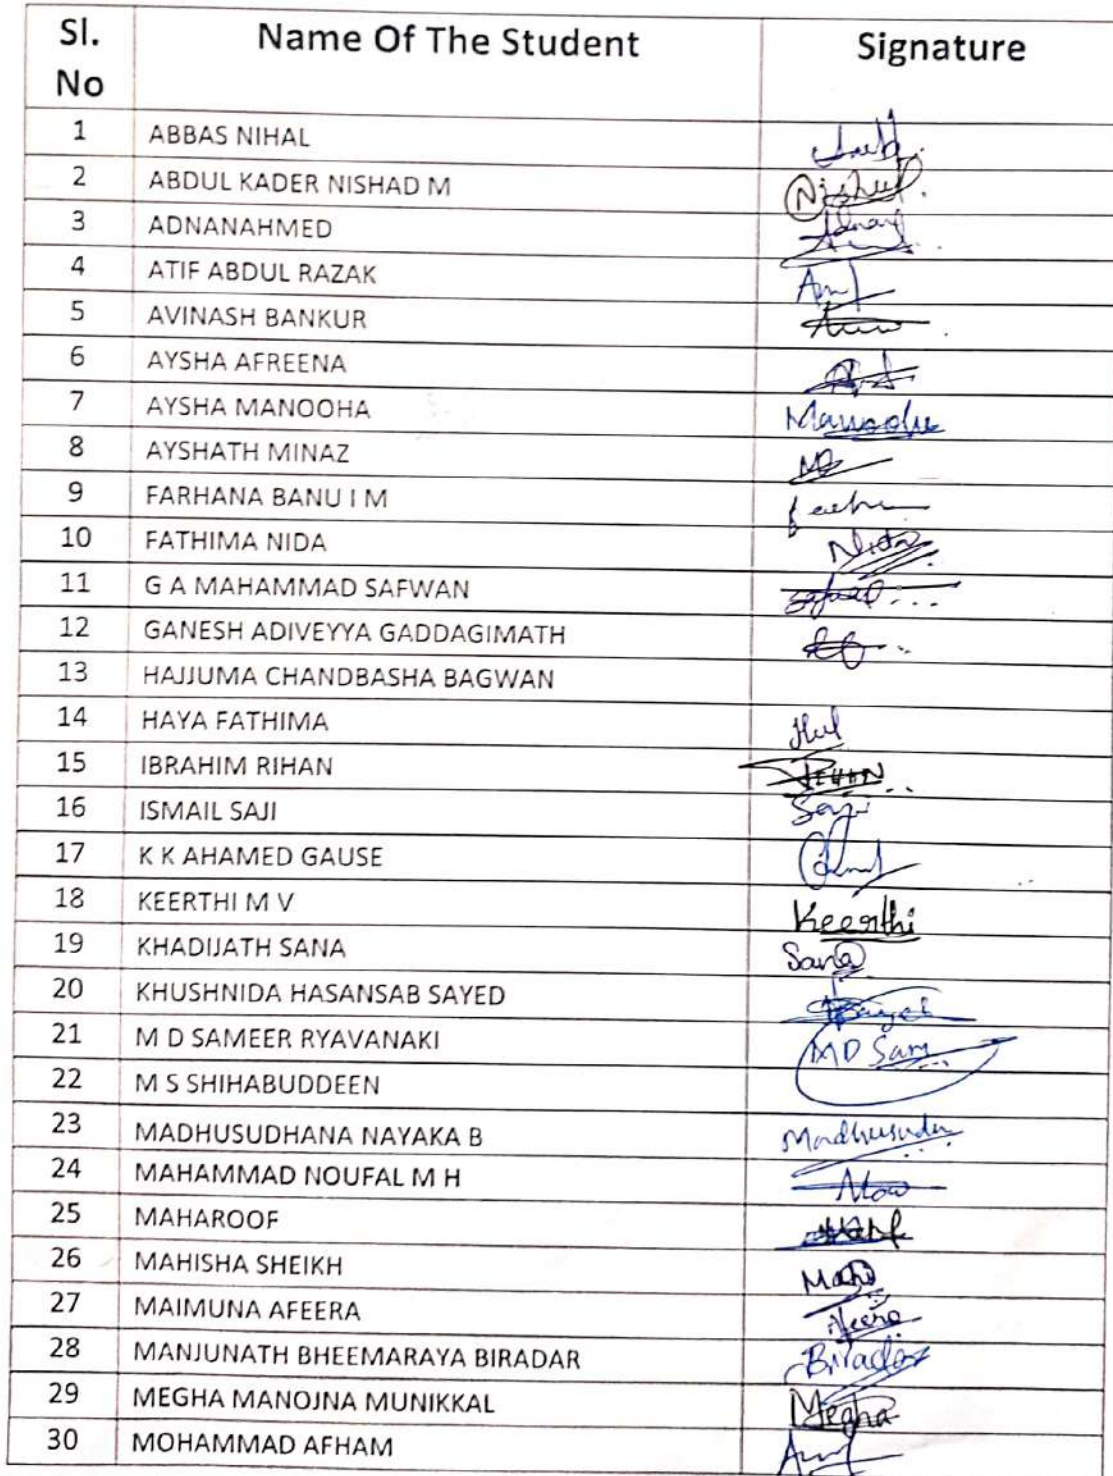 Sl. No Name Of The Student Signature
1 ABBAS NIHAL
2 ABDUL KADER NISHAD M
3 ADNANAHMED Adnan
4 ATIF ABDUL RAZAK
5 AVINASH BANKUR
6 AYSHA AFREENA
7 AYSHA MANOOHA
8 AYSHATH MINAZ
9 FARHANA BANU I M
10 FATHIMA NIDA Nida
11 G A MAHAMMAD SAFWAN
12 GANESH ADIVEYYA GADDAGIMATH
13 HAJJUMA CHANDBASHA BAGWAN
14 HAYA FATHIMA
15 IBRAHIM RIHAN
16 ISMAIL SAJI Saji
17 K K AHAMED GAUSE
18 KEERTHI M V Keerthi
19 KHADIJATH SANA Sana
20 KHUSHNIDA HASANSAB SAYED
21 M D SAMEER RYAVANAKI MD Sam
22 M S SHIHABUDDEEN
23 MADHUSUDHANA NAYAKA B
24 MAHAMMAD NOUFAL M H
25 MAHAROOF
26 MAHISHA SHEIKH
27 MAIMUNA AFEERA
28 MANJUNATH BHEEMARAYA BIRADAR Biradar
29 MEGHA MANOJNA MUNIKKAL Megha
30 MOHAMMAD AFHAM